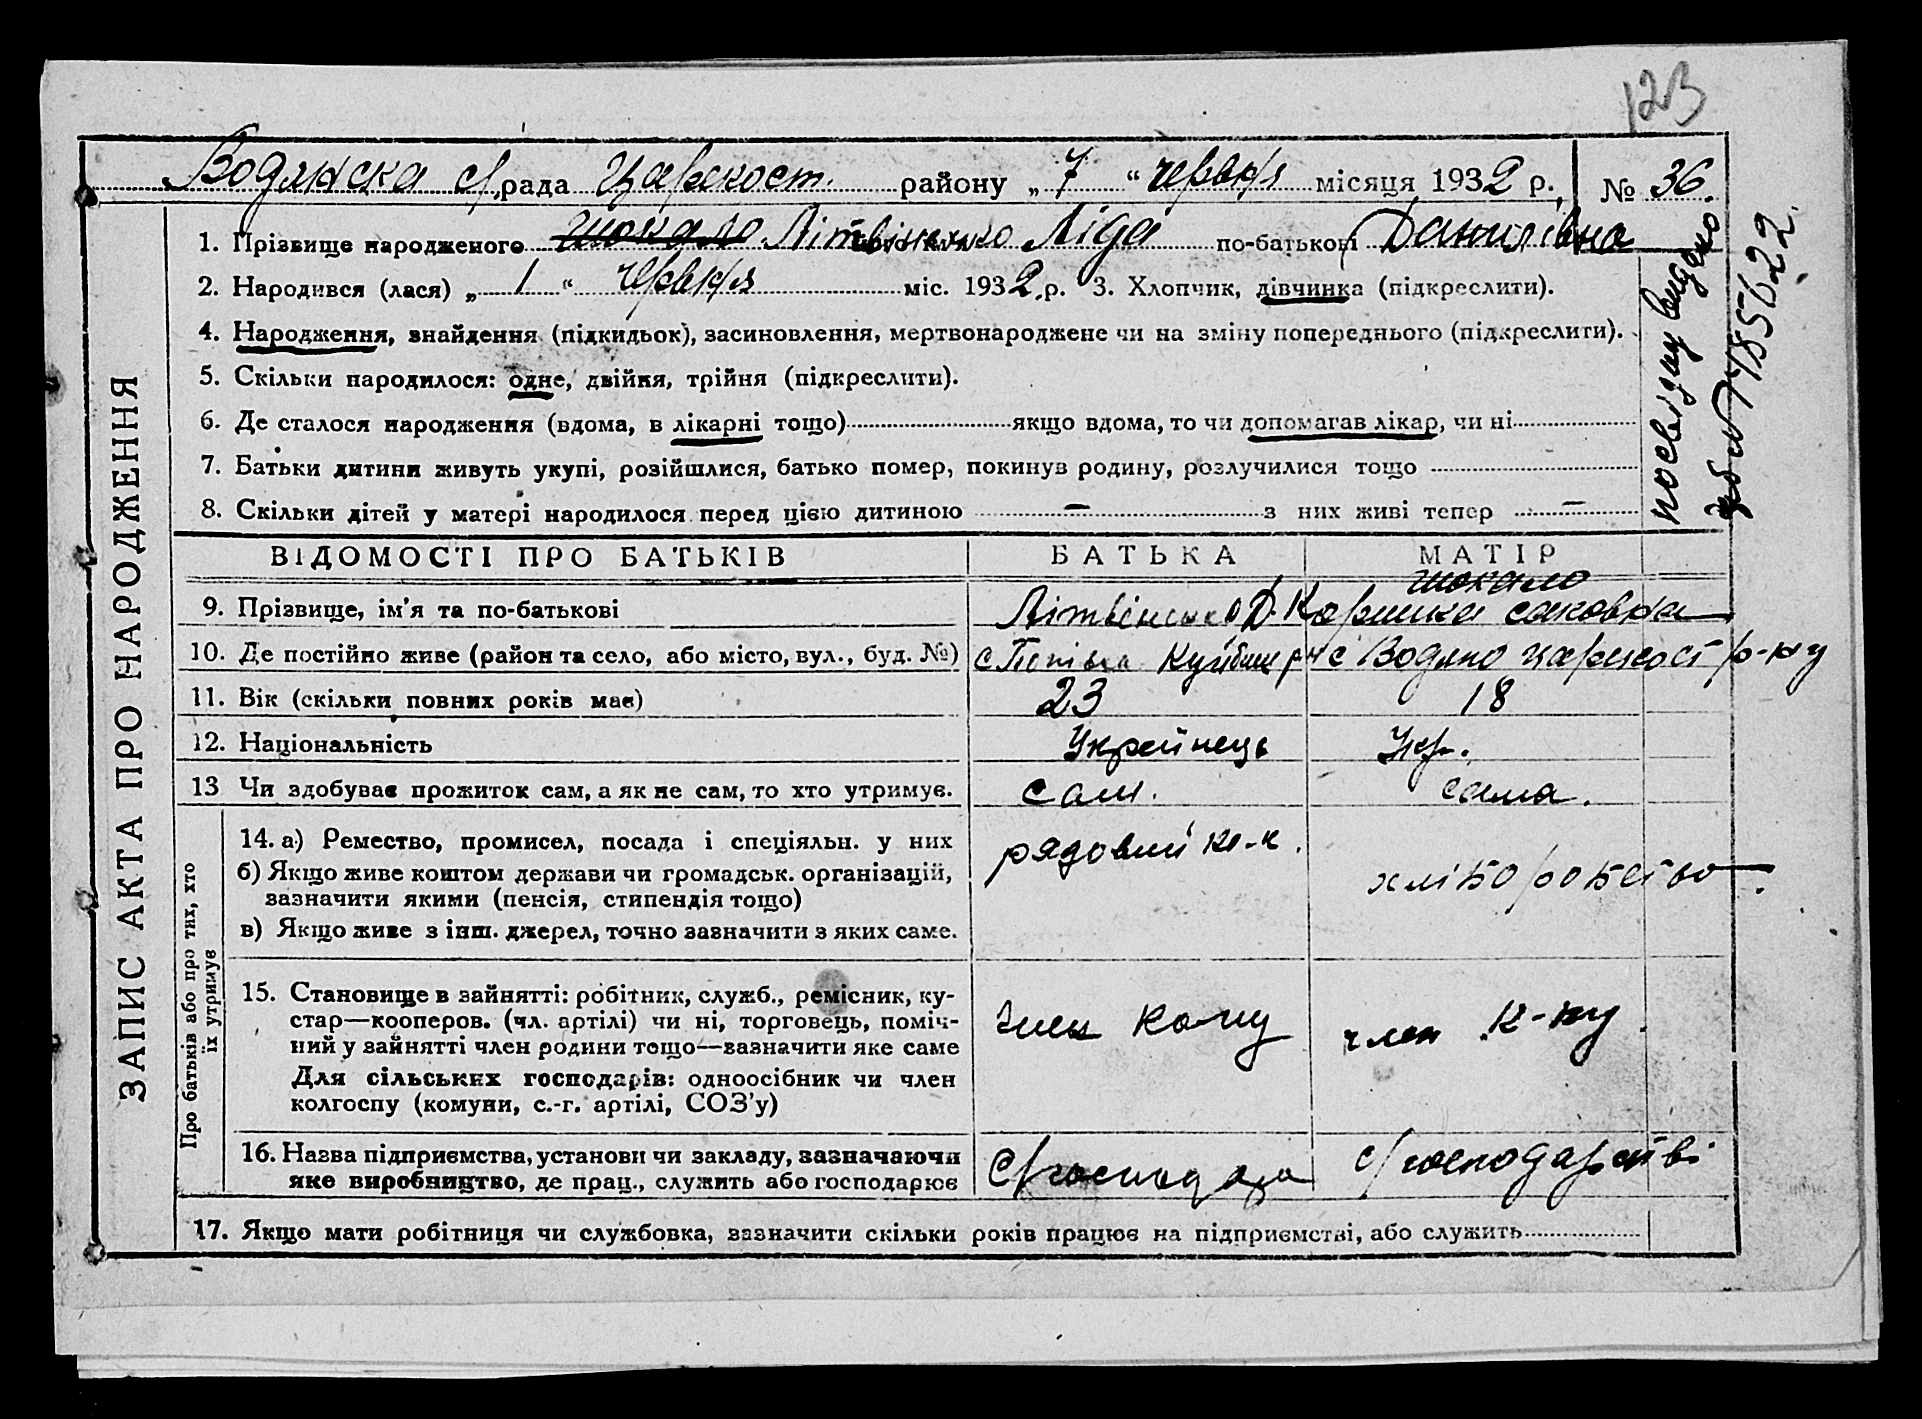 123
Водянска с/рада Царекост. району „7“ червня місяця 1932 р. № 36.
1. Прізвище народженого Шокало Літвіненко Ліда по-батькові Данилівна
2. Народився (лася) „1“ червня міс. 1932 р. 3. Хлопчик, дівчинка (підкреслити).
4. Народження, знайдення (підкидьок), засиновлення, мертвонароджене чи на зміну попереднього (підкреслити).
5. Скільки народилося: одне, двійня, трійня (підкреслити).
6. Де сталося народження (вдома, в лікарні тощо) якщо вдома, то чи допомагав лікар, чи ні
7. Батьки дитини живуть укупі, розійшлися, батько помер, покинув родину, розлучилися тощо
8. Скільки дітей у матері народилося перед цією дитиною — з них живі тепер —
посвідку видано
485622.
ЗАПИС АКТА ПРО НАРОДЖЕННЯ
ВІДОМОСТІ ПРО БАТЬКІВ БАТЬКА МАТІР
Шокало
9. Прізвище, ім'я та по-батькові Літвіненко Д. саковна
10. Де постійно живе (район та село, або місто, вул., буд. №) с Попівка с Водяно царекост р-ну
11. Вік (скільки повних років має) 23 18
12. Національність Українець Укр.
13 Чи здобуває прожиток сам, а як не сам, то хто утримує. сам. сама.
Про батьків або про тих, хто
їх утримує
14. а) Ремество, промисел, посада і спеціяльн. у них рядовий к-к.
б) Якщо живе коштом держави чи громадськ. організацій, хліборобство.
зазначити якими (пенсія, стипендія тощо)
в) Якщо живе з інш. джерел, точно зазначити з яких саме.
15. Становище в зайнятті: робітник, служб., ремісник, ку-
стар—кооперов. (чл. артілі) чи ні, торговець, поміч- член кому член к-ну.
ний у зайнятті член родини тощо—зазначити яке саме
Для сільських господарів: одноосібник чи член
колгоспу (комуни, с.-г. артілі, СОЗ'у)
16. Назва підприємства, установи чи закладу, зазначаючи с/господарстві
яке виробництво, де прац., служить або господарює
17. Якщо мати робітниця чи службовка, зазначити скільки років працює на підприємстві, або служить